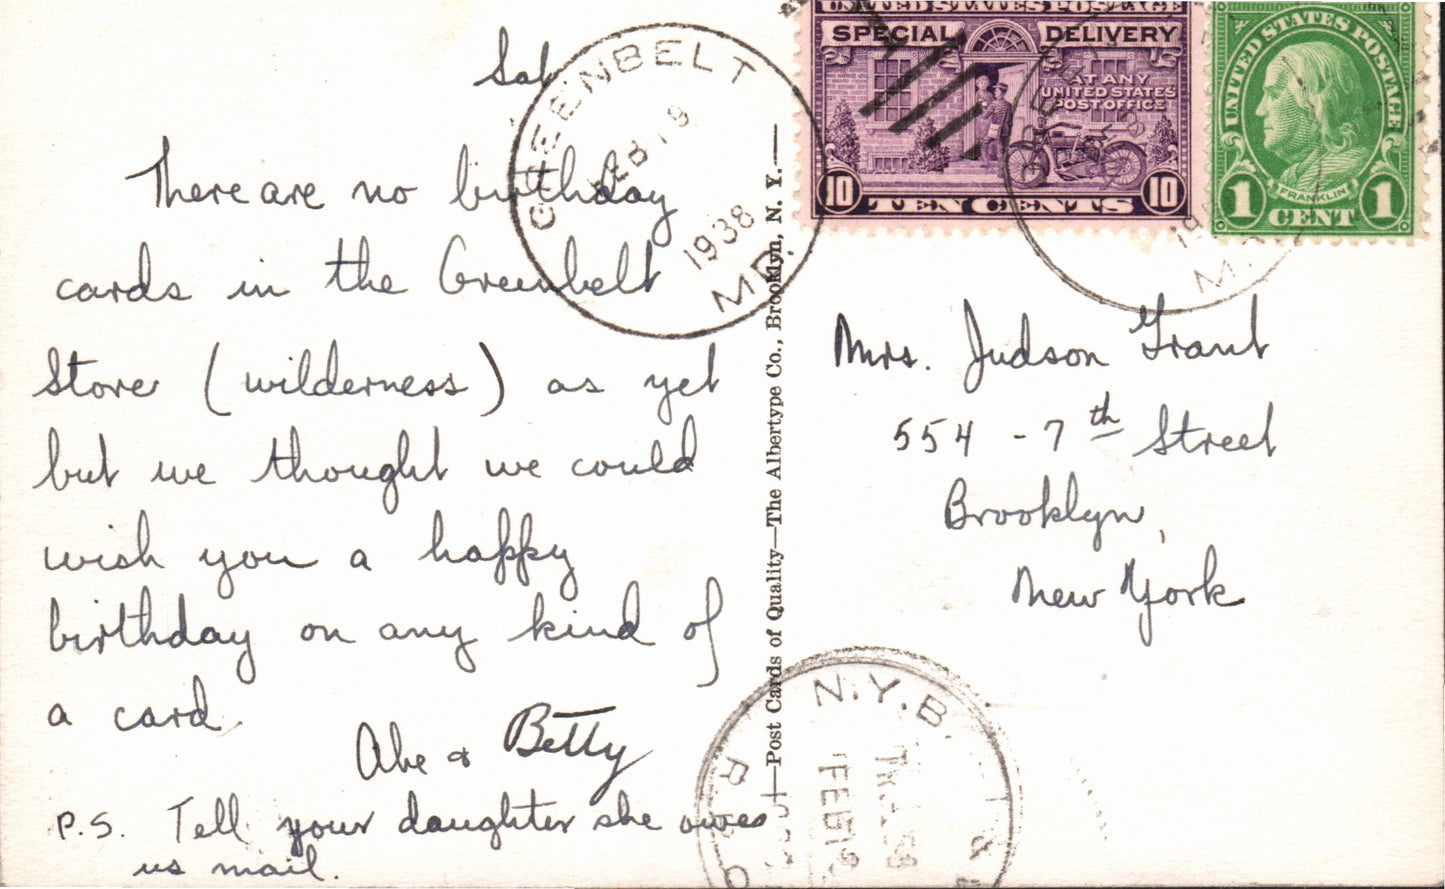 Sat
There are no birthday
cards in the Greenbelt
Store (wilderness) as yet
but we thought we could
wish you a happy
birthday on any kind of
a card.
Abe & Betty
P.S. Tell your daughter she owes
us mail.
GREENBELT
FEB 19
1938
MD.
—Post Cards of Quality—The Albertype Co., Brooklyn, N. Y.—
UNITED STATES POSTAGE
SPECIAL DELIVERY
AT ANY
UNITED STATES
POST OFFICE
10 TEN CENTS 10
UNITED STATES POSTAGE
FRANKLIN
1 CENT 1
Mrs. Judson Grant
554 - 7th Street
Brooklyn,
New York
N.Y.B.